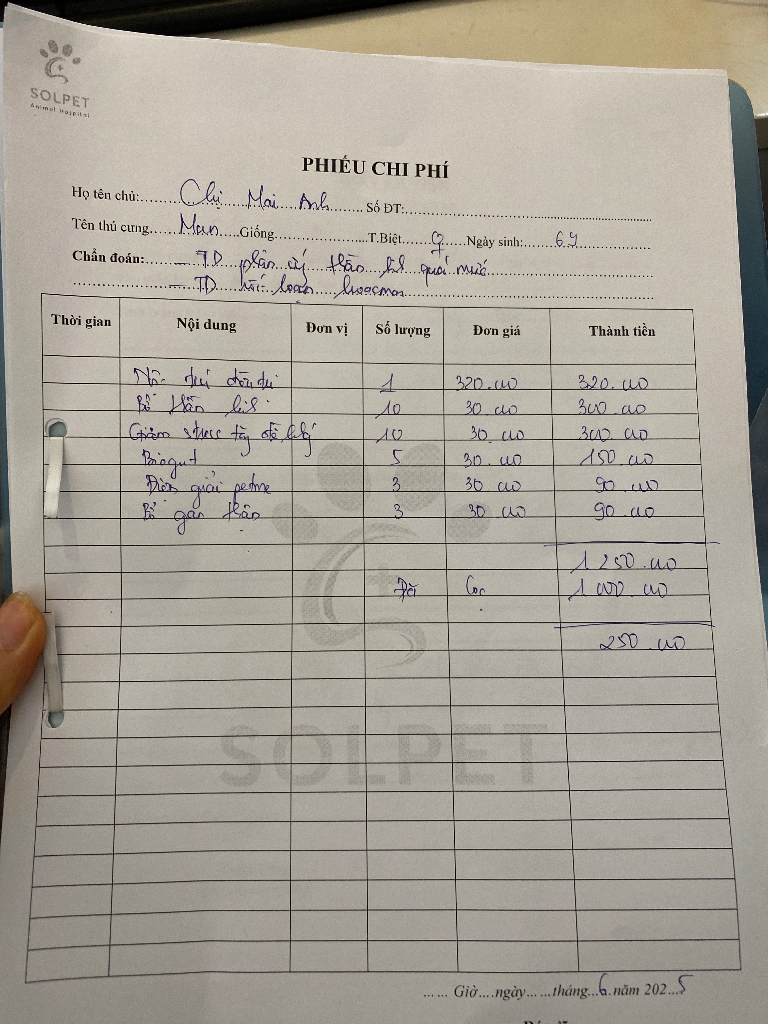 SOLPET
Animal Hospital
PHIẾU CHI PHÍ
Họ tên chủ: Chị Mai Anh Số ĐT:
Tên thú cưng Mun Giống T.Biệt ♀ Ngày sinh: 6y
Chẩn đoán: - TD phản ứng thần kinh quá mức
- TD rối loạn hoocmon
Thời gian Nội dung Đơn vị Số lượng Đơn giá Thành tiền
1 320.000 320.000
Bổ thần kinh 10 30.000 300.000
Giảm stress 10 30.000 300.000
Biogut 5 30.000 150.000
Điện giải 3 30.000 90.000
Bổ gan thận 3 30.000 90.000
1250.000
Đã Cọc 1000.000
250.000
SOLPET
Giờ ngày tháng 6 năm 2025